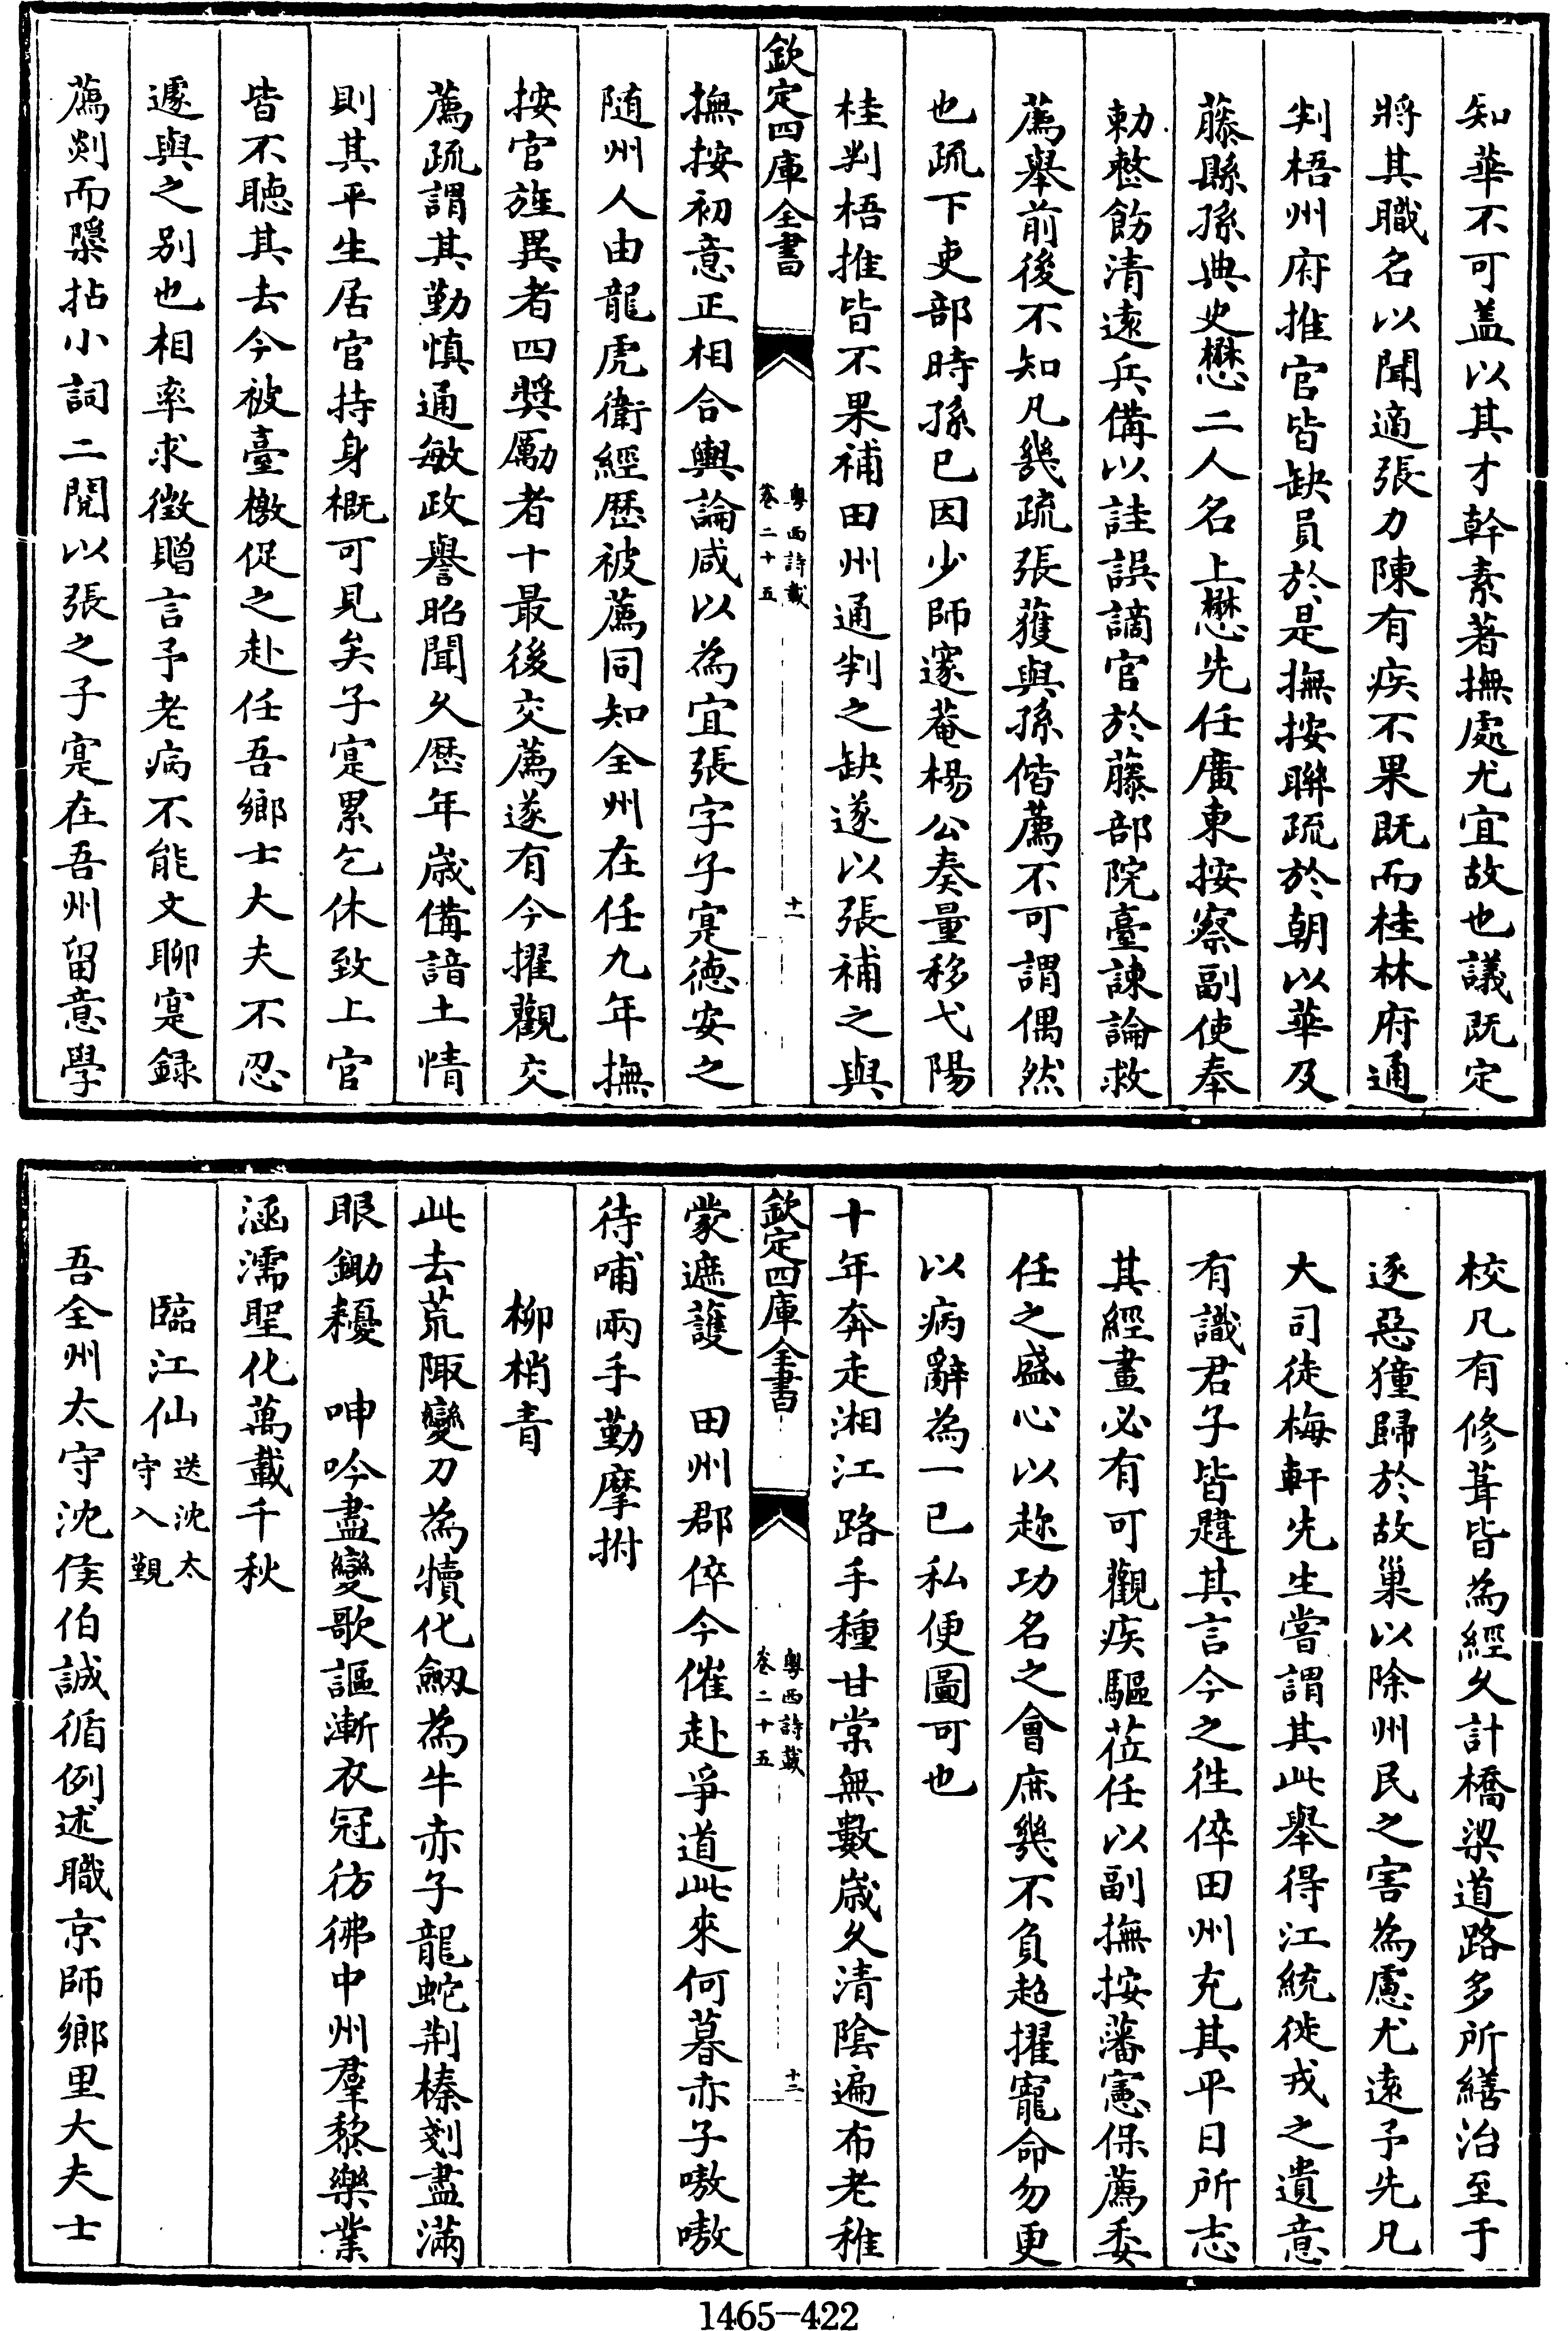 知華不可盖以其才幹素著撫處尤宜故也議既定
將其職名以聞適張力陳有疾不果既而桂林府通
判梧州府推官皆缺員於是撫按聯疏於朝以華及
藤縣孫典史懋二人名上懋先任廣東按察副使奉
勅整飭清遠兵備以詿誤謫官於藤部院臺諫論救
薦舉前後不知凡幾疏張獲與孫偕薦不可謂偶然
也疏下吏部時孫已因少師邃菴楊公奏量移弋陽
桂判梧推皆不果補田州通判之缺遂以張補之與
欽定四庫全書
粤西詩載
卷二十五
十一
撫按初意正相合輿論咸以為宜張字子寔徳安之
随州人由龍虎衛經歷被薦同知全州在任九年撫
按官旌異者四奬勵者十最後交薦遂有今擢觀交
薦疏謂其勤慎通敏政譽昭聞久歴年歲備諳土情
則其平生居官持身概可見矣子寔累乞休致上官
皆不聽其去今被臺檄促之赴任吾鄉士大夫不忍
遽與之别也相率求徵贈言予老病不能文聊寔録
薦剡而檃拈小詞二闋以張之子寔在吾州留意學
校凡有修葺皆為經久計橋梁道路多所繕治至于
逐惡獞歸於故巢以除州民之害為慮尤遠予先兄
大司徒梅軒先生嘗謂其此舉得江統徙戎之遺意
有識君子皆韙其言今之徃倅田州充其平日所志
其經畫必有可觀疾驅莅任以副撫按藩憲保薦委
任之盛心以趂功名之會庶幾不負超擢寵命勿更
以病辭為一已私便圖可也
十年奔走湘江路手種甘棠無數歲久清陰遍布老稚
欽定四庫全書
粤西詩載
卷二十五
十二
蒙遮護　田州郡倅今催赴爭道此來何暮赤子嗷嗷
待哺兩手勤摩拊
柳梢青
此去荒陬變刀為犢化劔為牛赤子龍蛇荆榛剗盡滿
眼鋤耰　呻吟盡變歌謳漸衣冠彷彿中州羣黎樂業
涵濡聖化萬載千秋
臨江仙送沈太守入覲
吾全州太守沈侯伯誠循例述職京師鄉里大夫士
1465-422